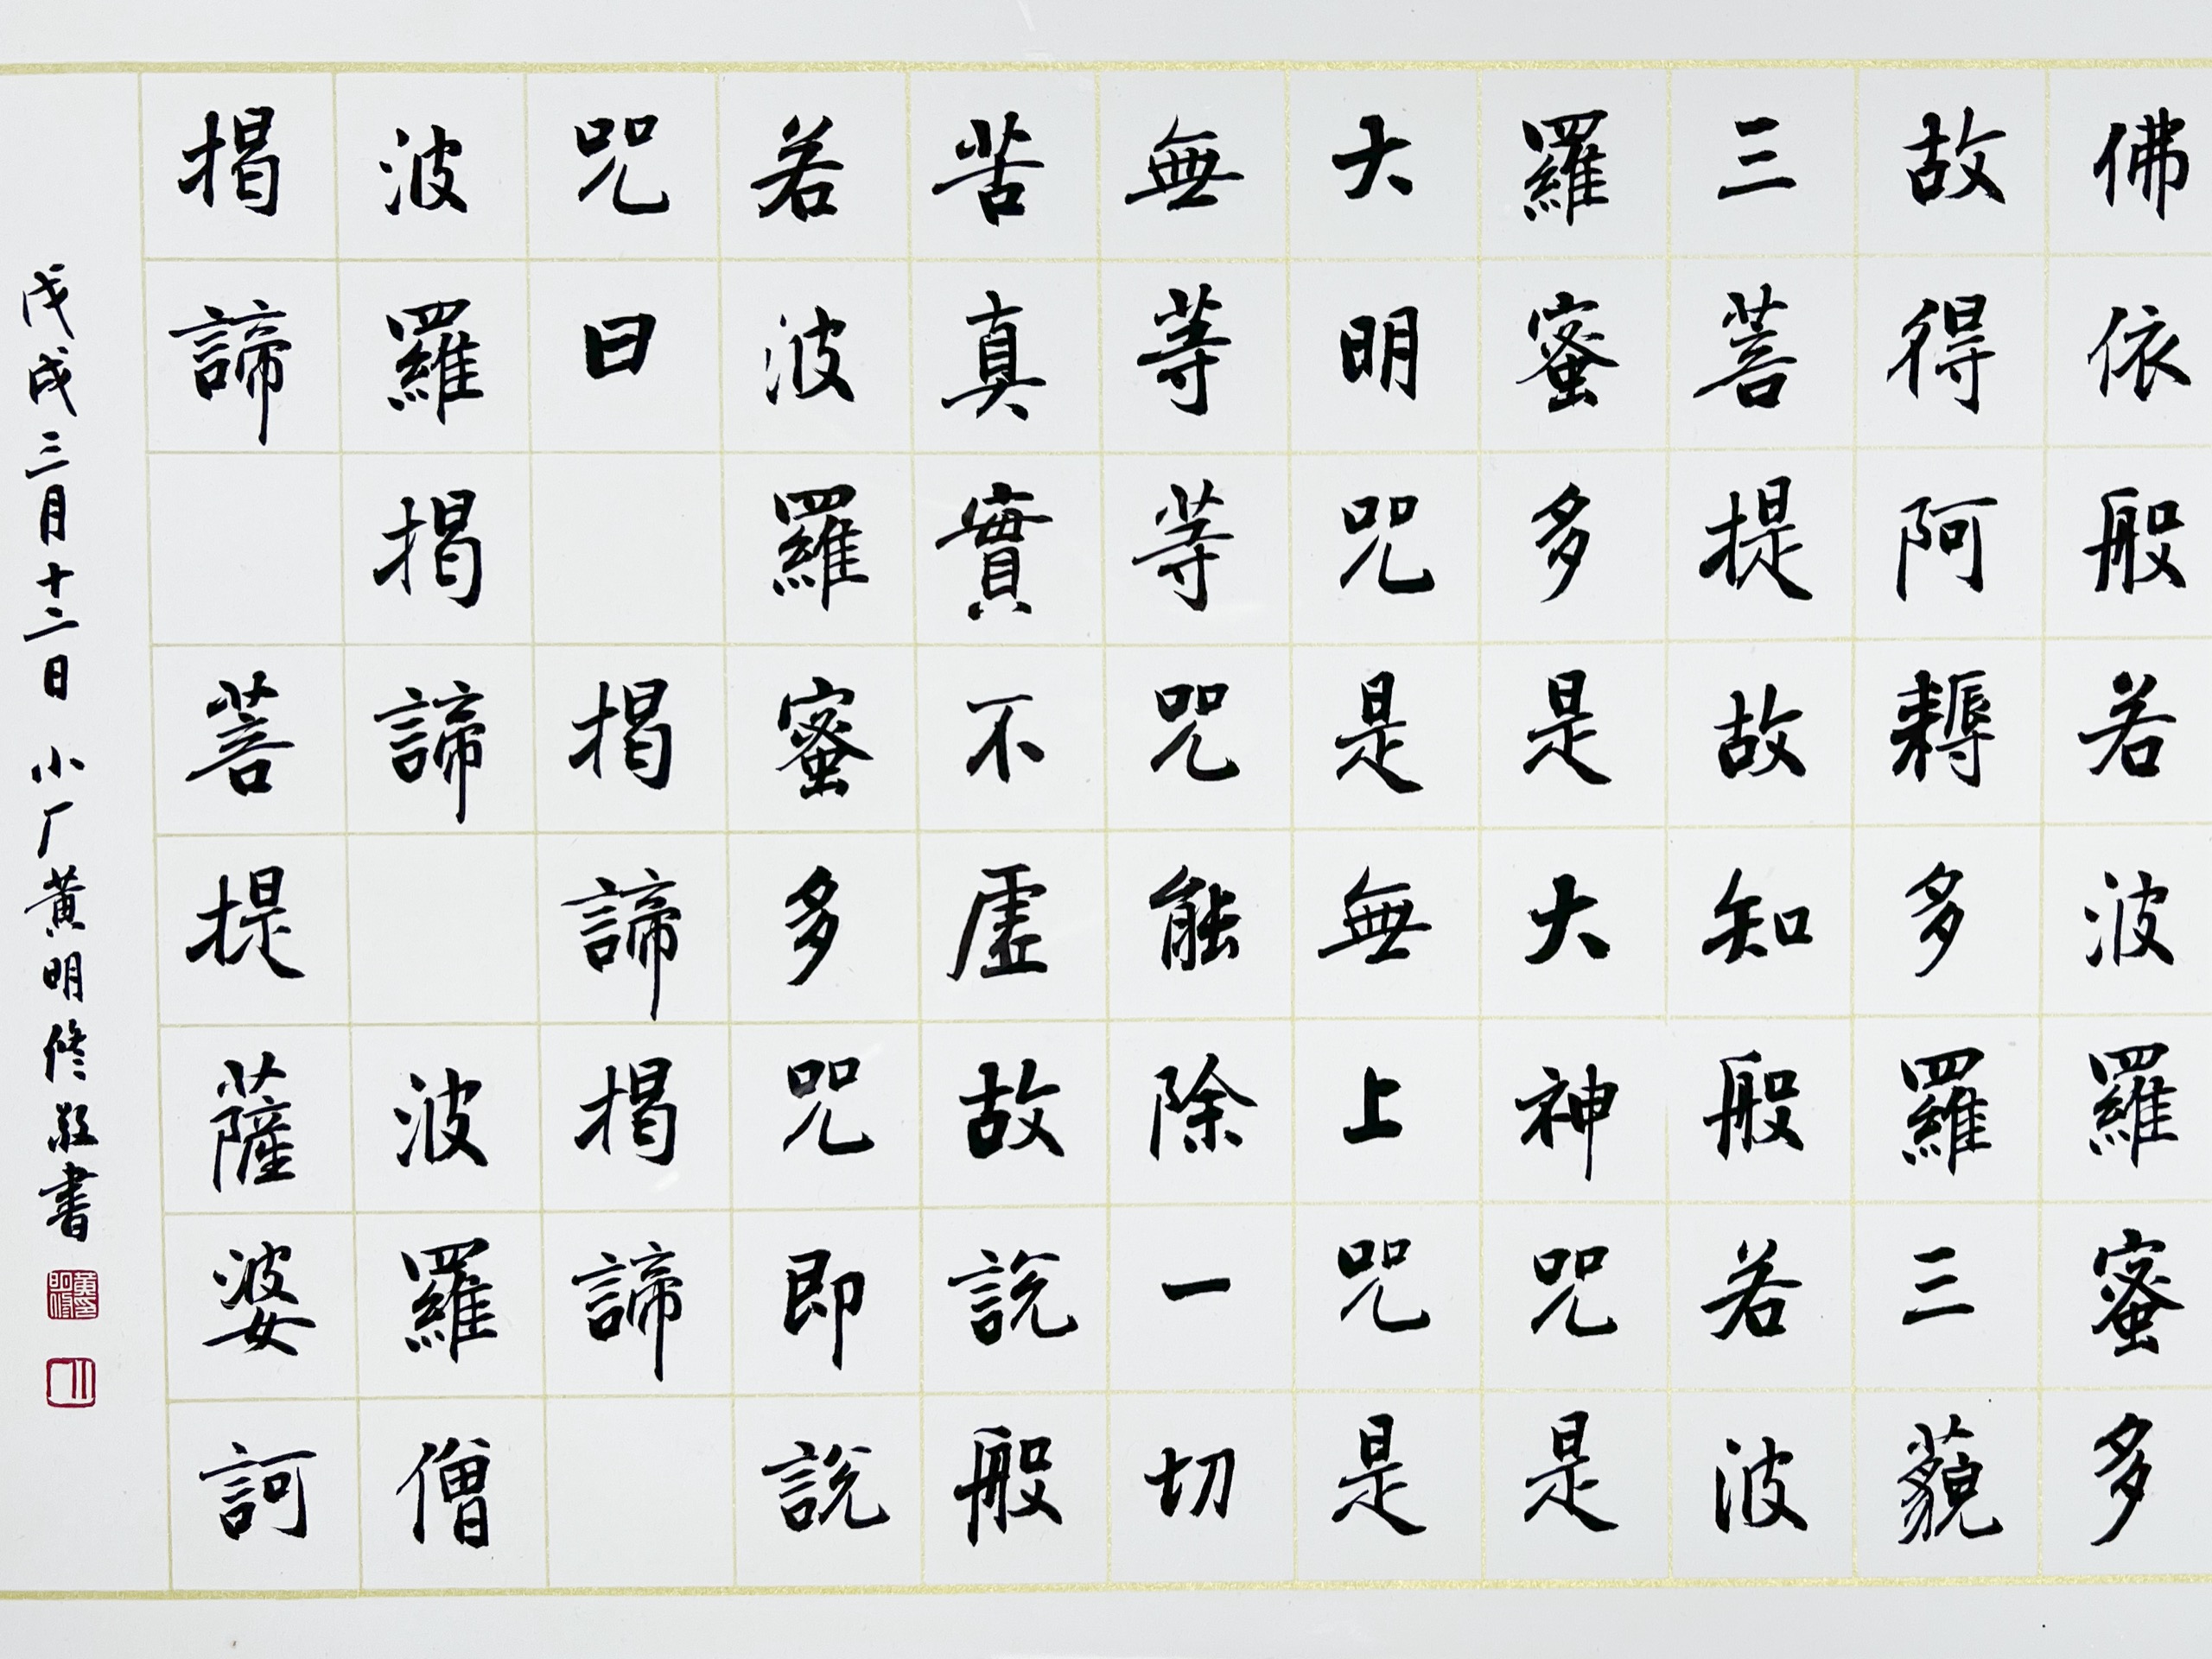 佛依般若波羅蜜多
故得阿耨多羅三藐
三菩提故知般若波
羅蜜多是大神咒是
大明咒是無上咒是
無等等咒能除一切
苦真實不虛故說般
若波羅蜜多咒即說
咒曰 揭諦揭諦
波羅揭諦 波羅僧
揭諦 菩提薩婆訶
戊戌三月十二日 小厂黃明修敬書